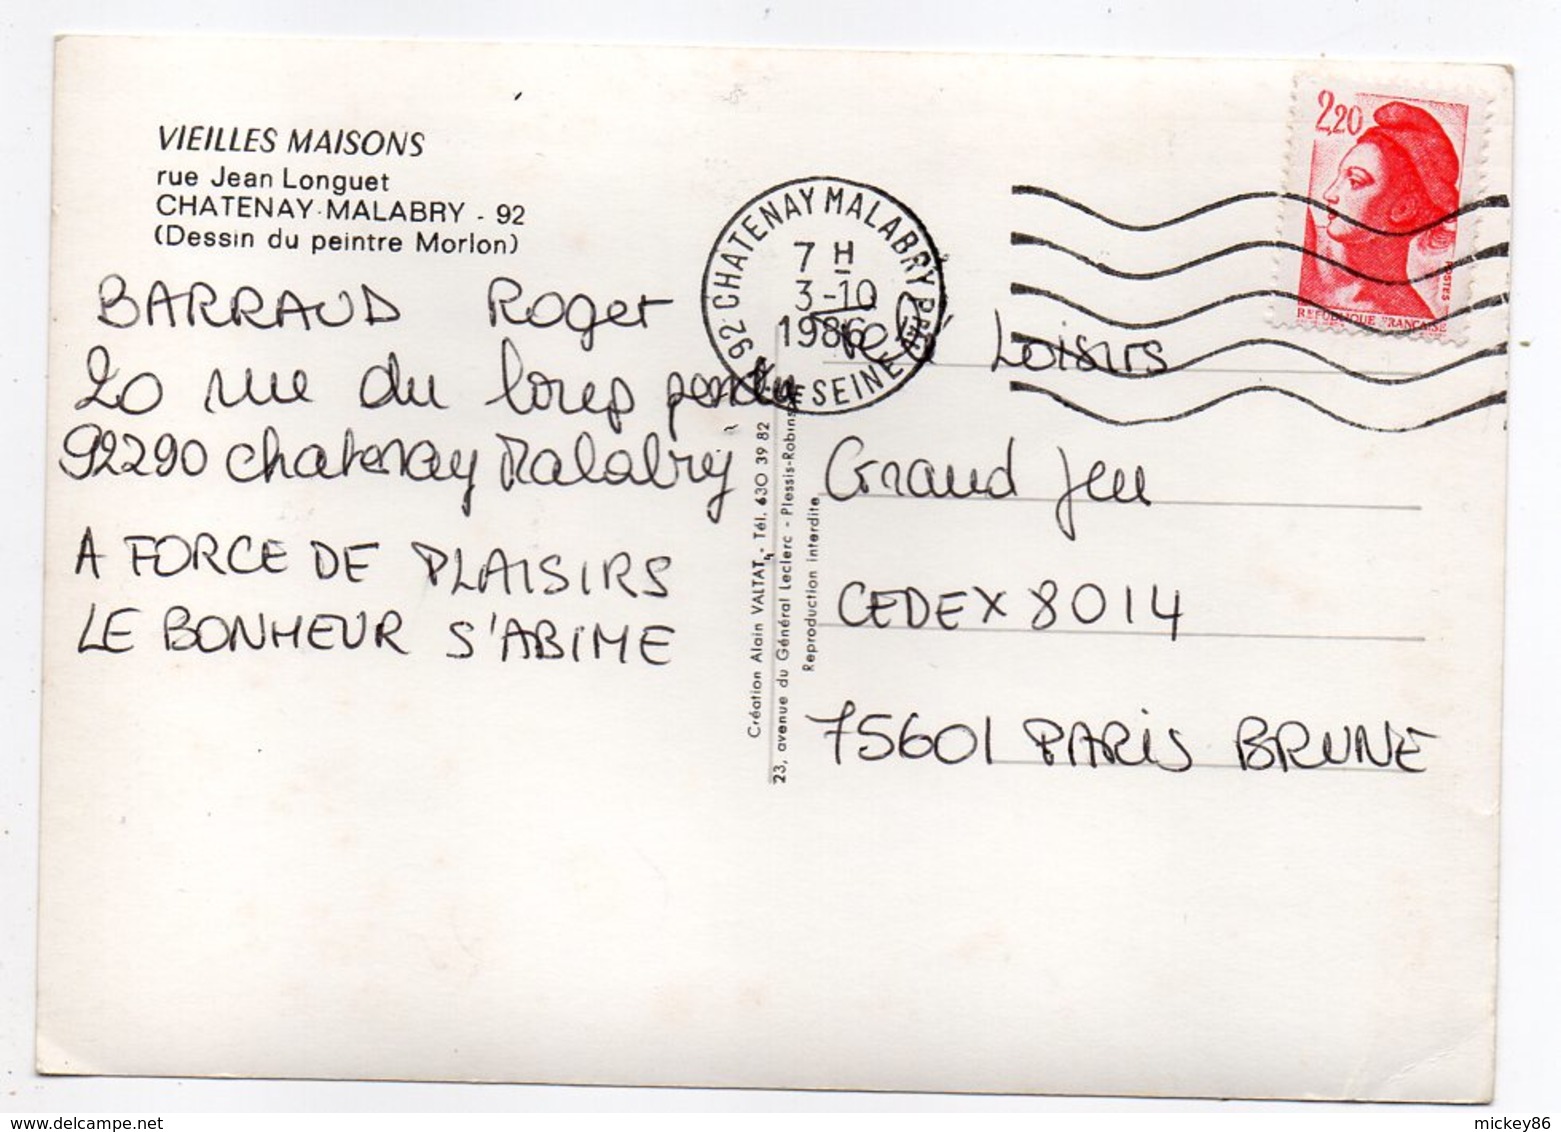 VIEILLES MAISONS
rue Jean Longuet
CHATENAY-MALABRY - 92
(Dessin du peintre Morlon)
BARRAUD Roger
20 rue du loup pendu
92290 Chatenay Malabry
A FORCE DE PLAISIRS
LE BONHEUR S'ABIME
Création Alain VALTAT - Tél. 630 39 82
23, avenue du Général Leclerc - Plessis-Robinson
Reproduction interdite
92 CHATENAY MALABRY PPAL
7 H
3-10
1986
SEINE
2,20
POSTES
REPUBLIQUE FRANÇAISE
Loisirs
Grand Jeu
CEDEX 8014
75601 PARIS BRUNE
mickey86